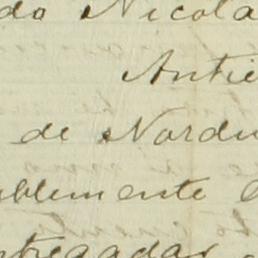 do Nicola
Antie
de Nordu
ablemente
ntregadas